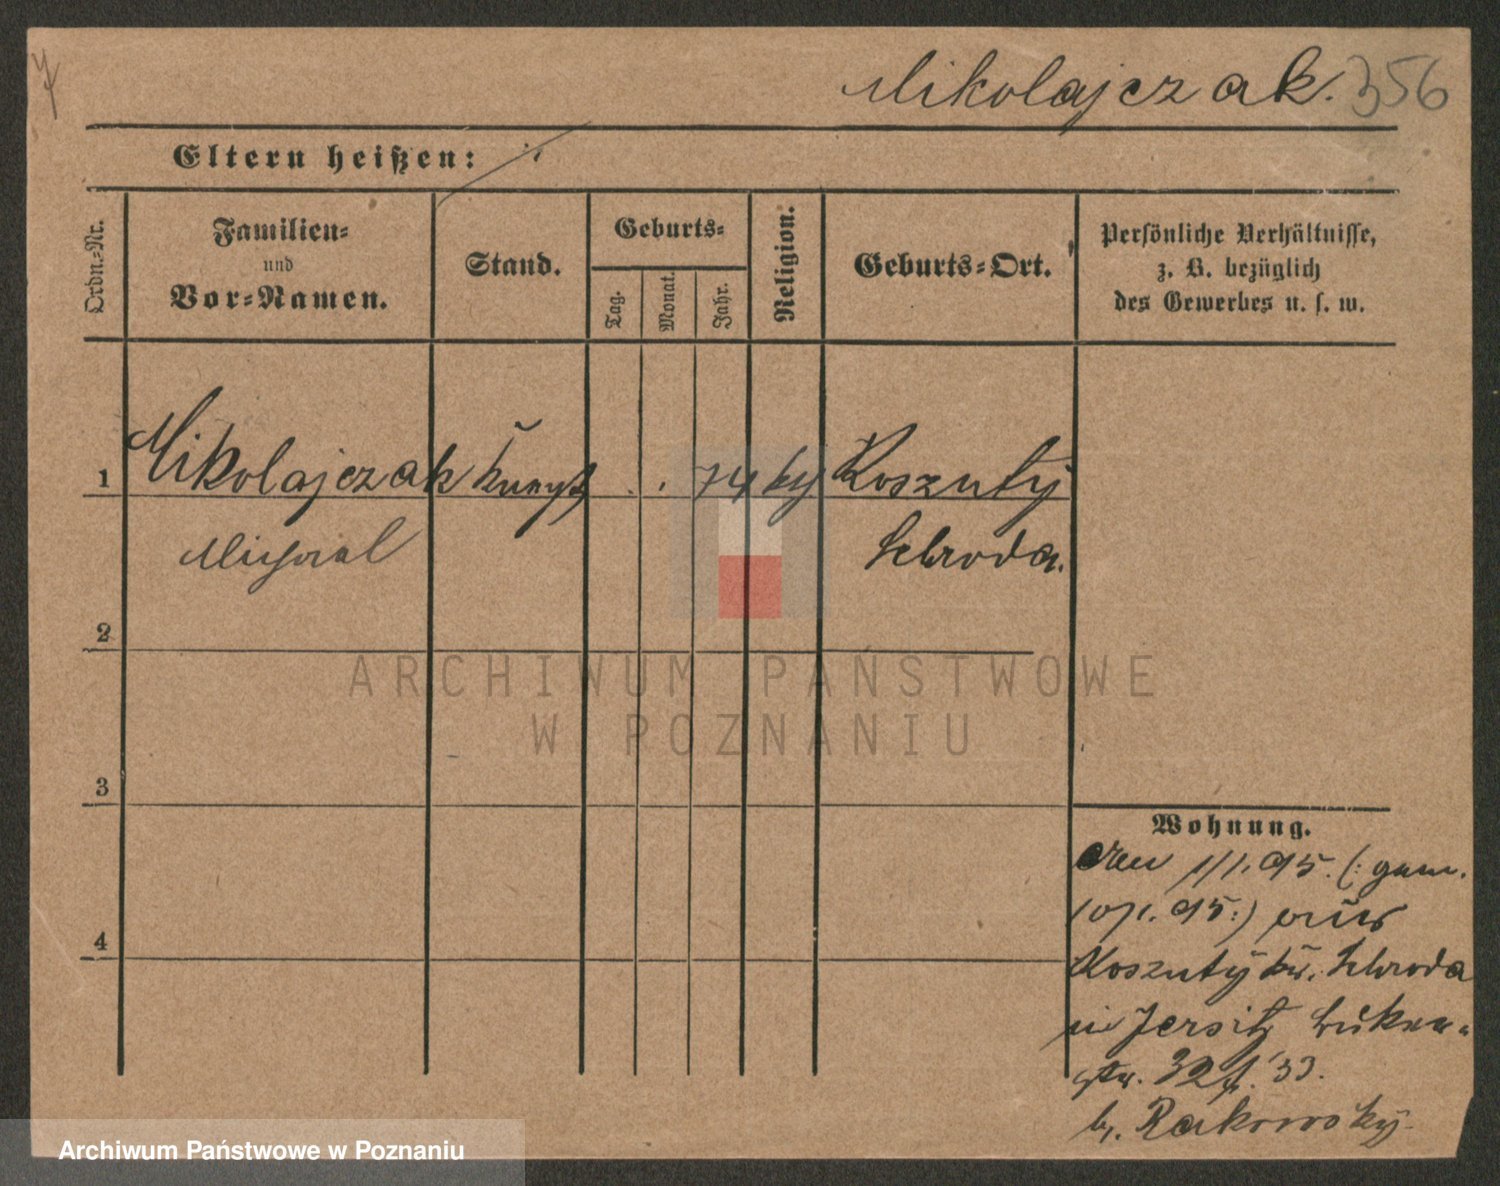 Mikolajczak. 356
Eltern heißen: ·/.
Ordn.-Nr.
Familien-
und
Vor-Namen.
Stand.
Geburts-
Tag.
Monat.
Jahr.
Religion.
Geburts-Ort.
Persönliche Verhältnisse,
z. B. bezüglich
des Gewerbes u. s. w.
1 Mikolajczak . . 74 Koszuty
Michael Schroda.
2
3
4
Wohnung.
1/1. 95. (: gem.
10/1. 95 :) aus
Koszuty Kr. Schroda
in Jersitz
str. 32 33.
b. Rakowsky
ARCHIWUM PAŃSTWOWE
W POZNANIU
Archiwum Państwowe w Poznaniu